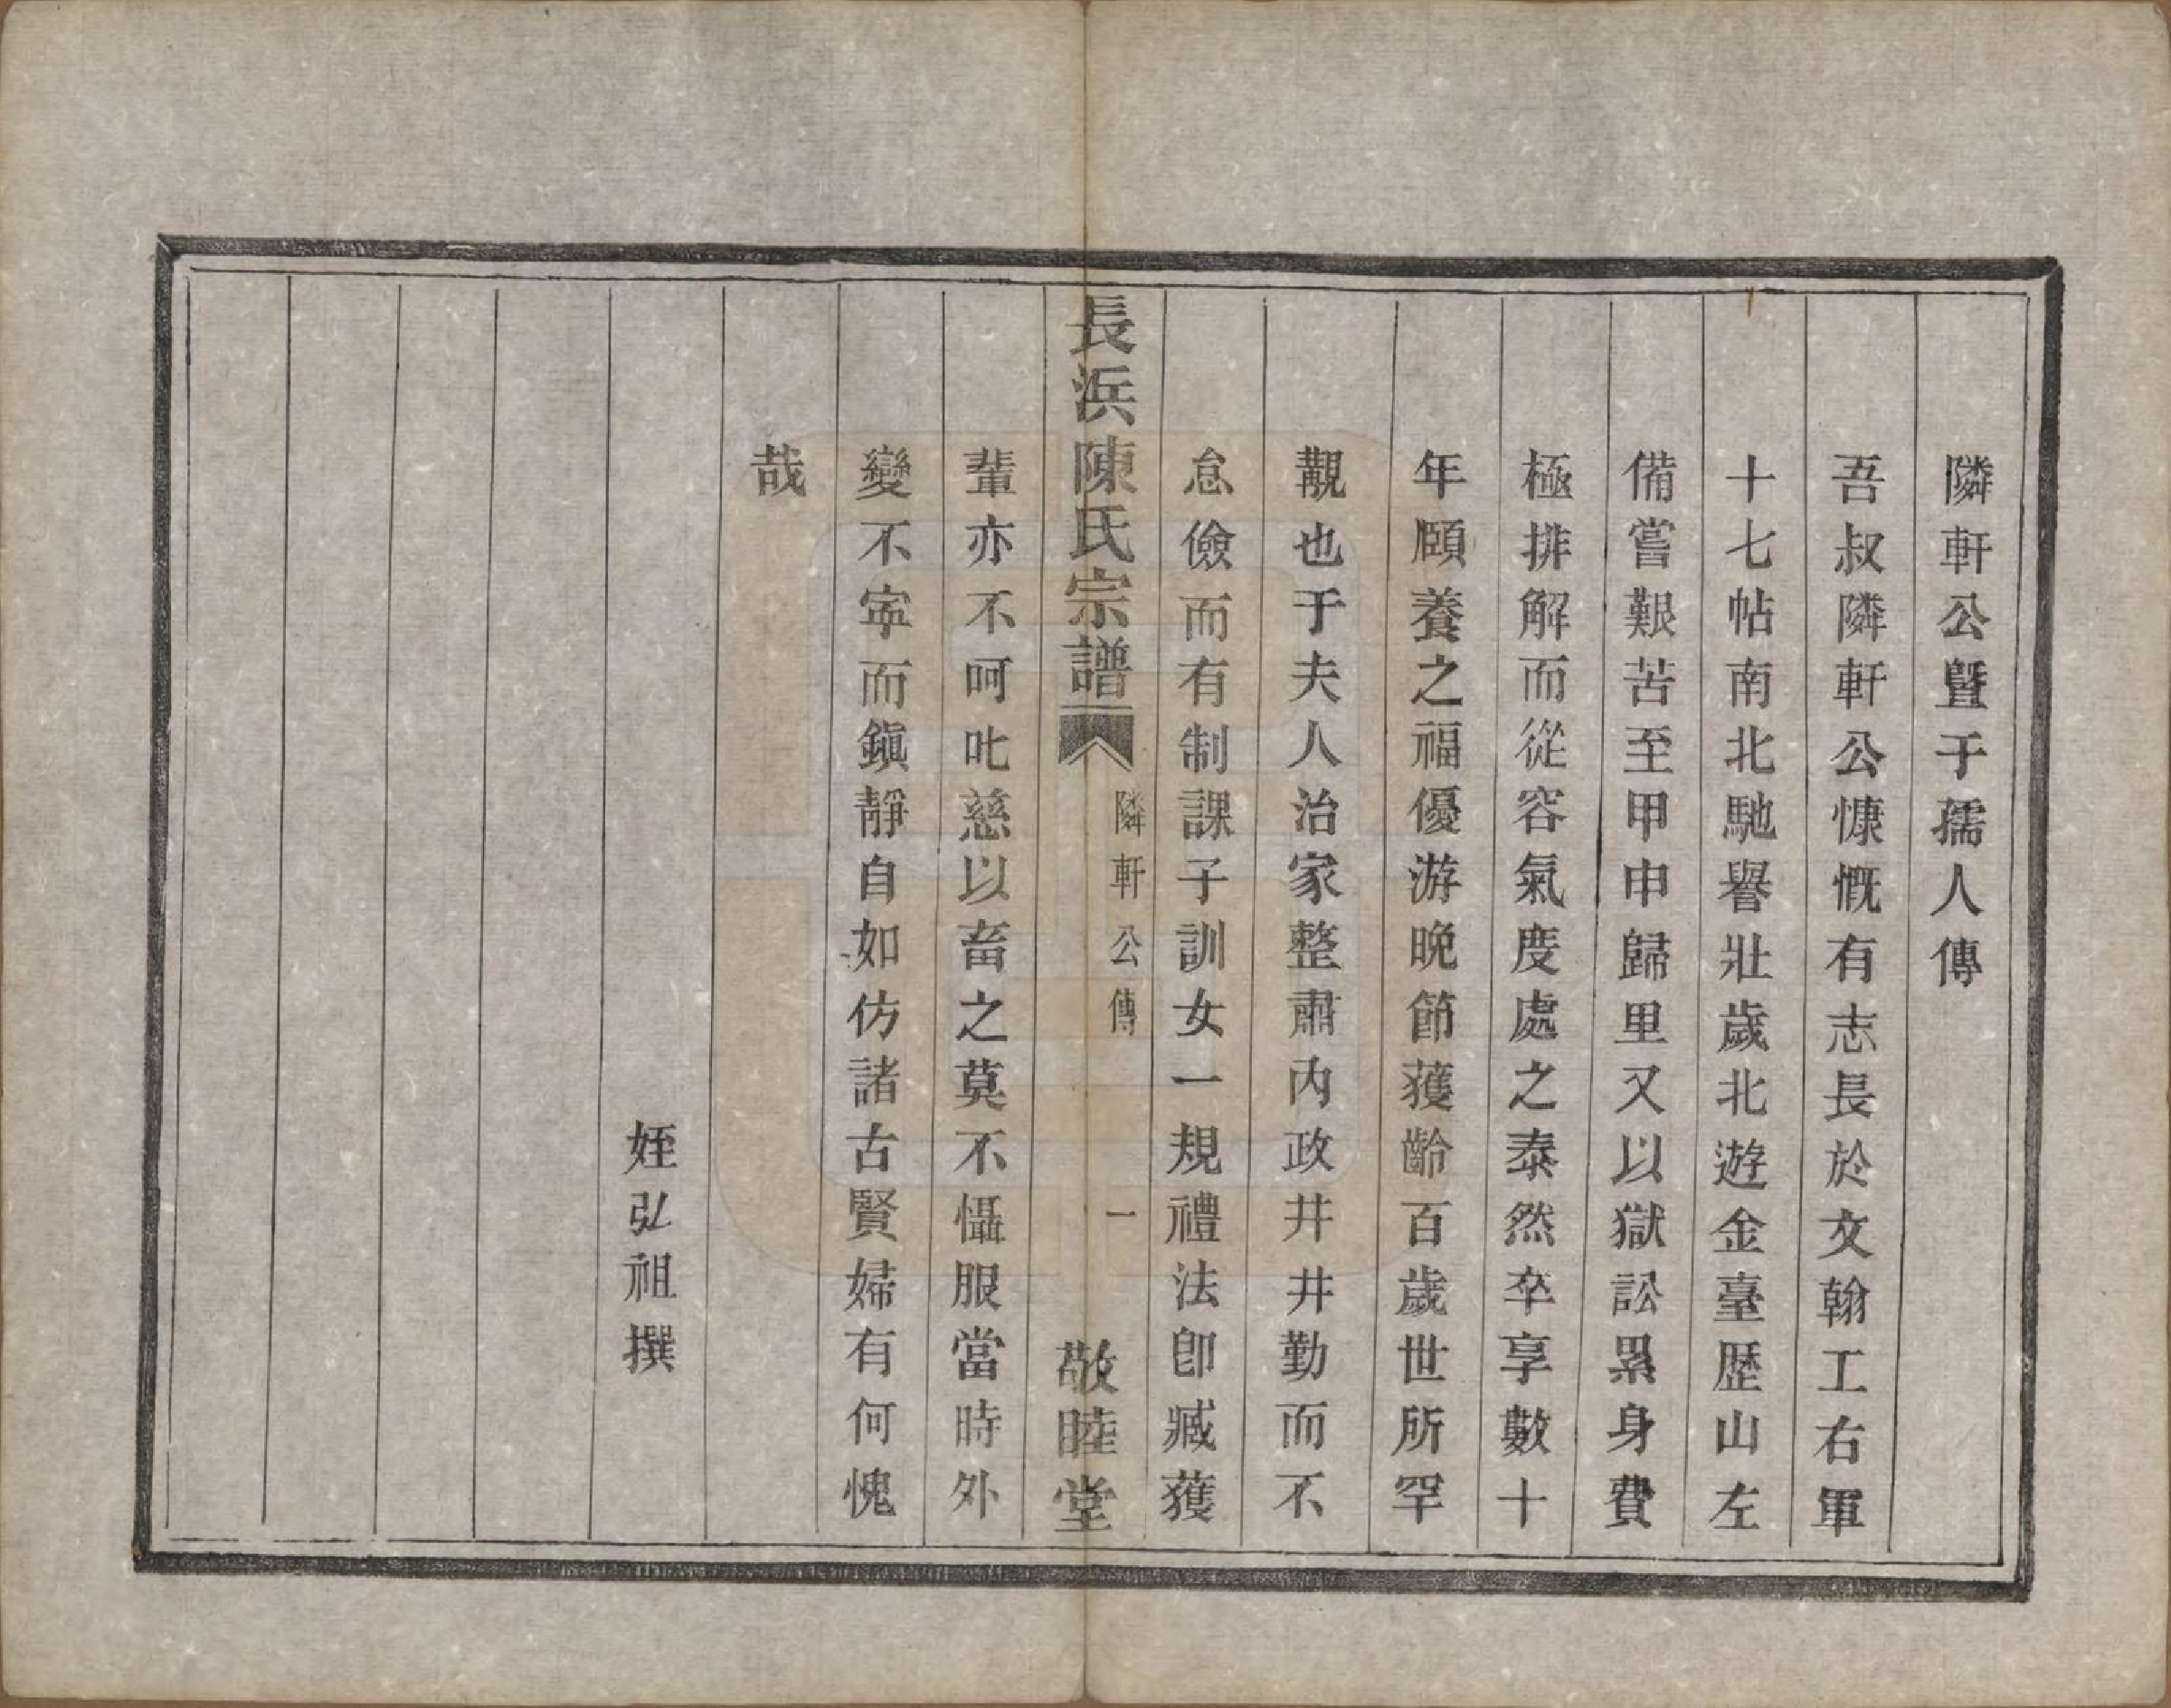 隣軒公暨于孺人傳
吾叔隣軒公慷慨有志長於文翰工右軍
十七帖南北馳譽壯歲北遊金臺歷山左
備嘗艱苦至甲申歸里又以獄訟累身費
極排解而從容氣度處之泰然卒享數十
年頤養之福優游晚節獲齡百歲世所罕
觀也于夫人治家整肅內政井井勤而不
怠儉而有制課子訓女一規禮法卽臧獲
長浜陳氏宗譜
隣軒公傳
一
敬睦堂
輩亦不呵叱慈以畜之莫不懾服當時外
變不寧而鎭靜自如仿諸古賢婦有何愧
哉
姪弘祖撰